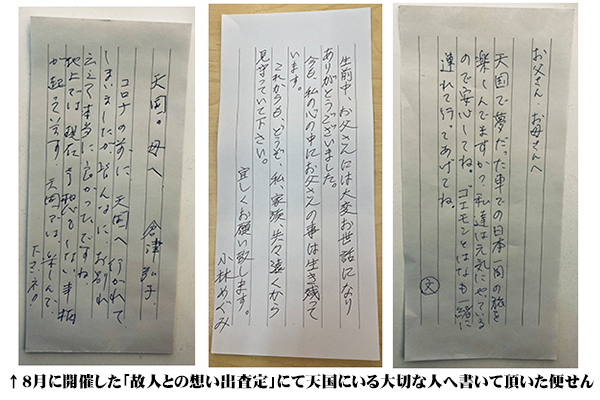 天国の母へ 会津弘子
コロナの前に、天国へ行かれて
しまいましたが皆んなに、お別れ
云えて本当に良かったですね
地上では現在予想もしない事柄
が起ています 天国では、楽しんで
下さいネ!
生前中、お父さんには大変お世話になり
ありがとうございました。
今も、私の心の中にお父さんの事は生き残って
います。
これからも、どうぞ、私、家族、共々遠くから
見守っていて下さい。
宜しくお願い致します。
小林めぐみ
お父さん、お母さんへ
天国で夢だった車での日本一周の旅を
楽しんでますか?私達は元気にやっている
ので安心してね。ゴエモンとはなも一緒に
連れて行ってあげてね。
文
↑8月に開催した「故人との想い出査定」にて天国にいる大切な人へ書いて頂いた便せん